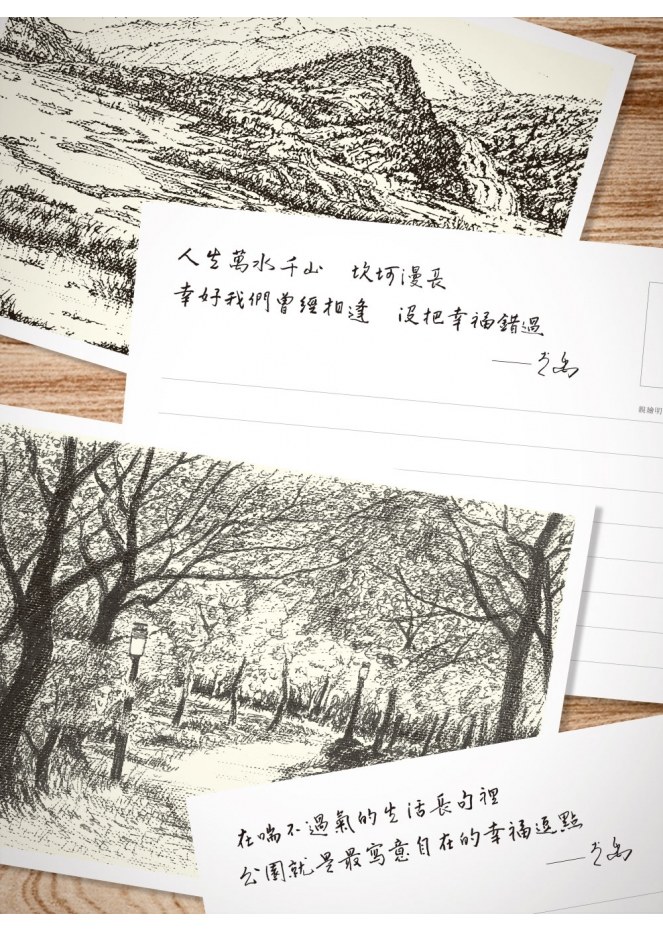 人生萬水千山 坎坷漫長
幸好我們曾經相逢 沒把幸福錯過
在喘不過氣的生活長句裡
公園就是最寫意自在的幸福逗點